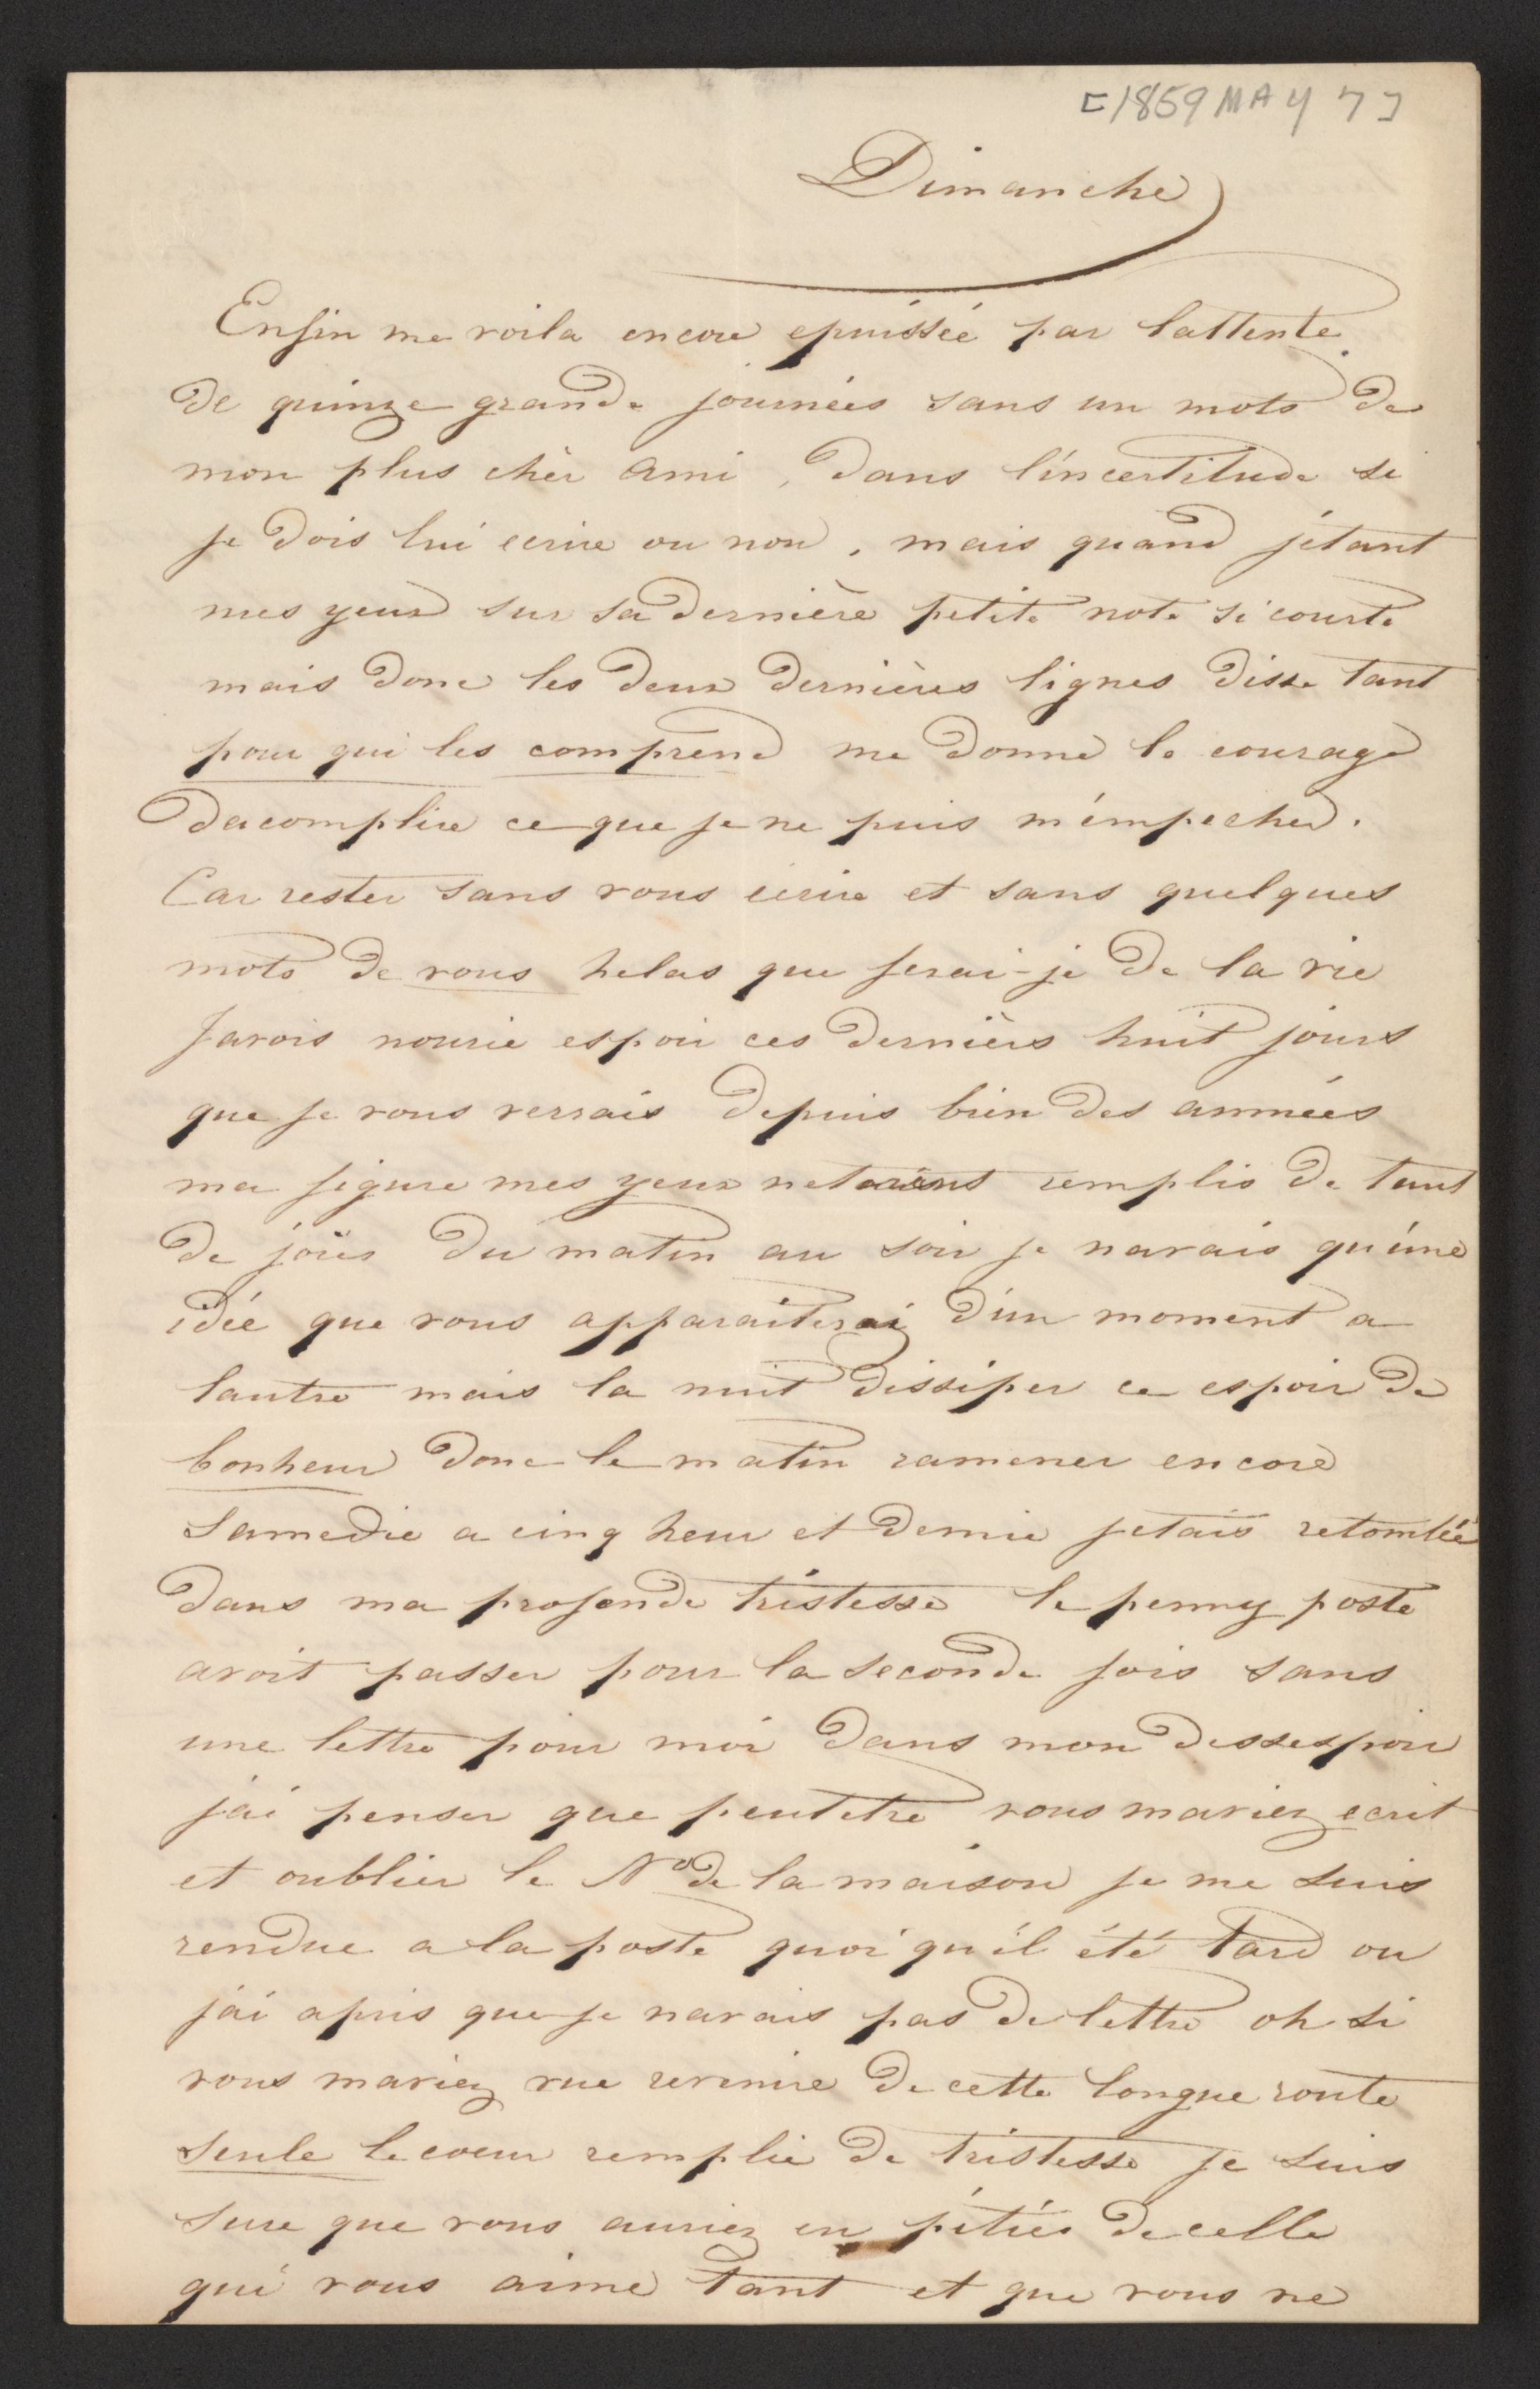 [1859 MAY 7]
Dimanche
Enfin me voila encore epuissée par lattente
de quinze grande journées sans un mots de
mon plus chèr ami, dans l'incertitude si
je dois lui ecrire ou non, mais quand jétant
mes yeux sur sa dernière petite note si courte
mais donc les deux dernières lignes disse tant
pour qui les comprend me donne le courage
dacomplire ce que je ne puis m'émpecher.
Car rester sans vous écrire et sans quelques
mots de vous helas que ferai-je de la vie
Javois nourie espoir ces dernièrs huit jours
que je vous verrais depuis bien des années
ma figure mes yeux netaient remplis de tant
de joies du matin au soir je navais qu'úne
idée que vous apparaiterai d'un moment a
lautre mais la nuit dissiper ce espoir de
bonheur donc le matin ramener encore
Samedie a cinq heur et demie jetais retombée
dans ma profonde tristesse le penny poste
avoit passer pour la seconde fois sans
une lettre pour moi dans mon dessespoir
jái penser que peutetre vous maviez ecrit
et oublier le No de la maison je me suis
rendue a la poste quoi qu'il été tard ou
jái apris que je navais pas de lettre oh si
vous maviez vue revenire de cette longue route
seule le coeur remplie de tristesse je suis
sure que vous auriez eu pitiés de celle
qui vous aime tant et que vous ne